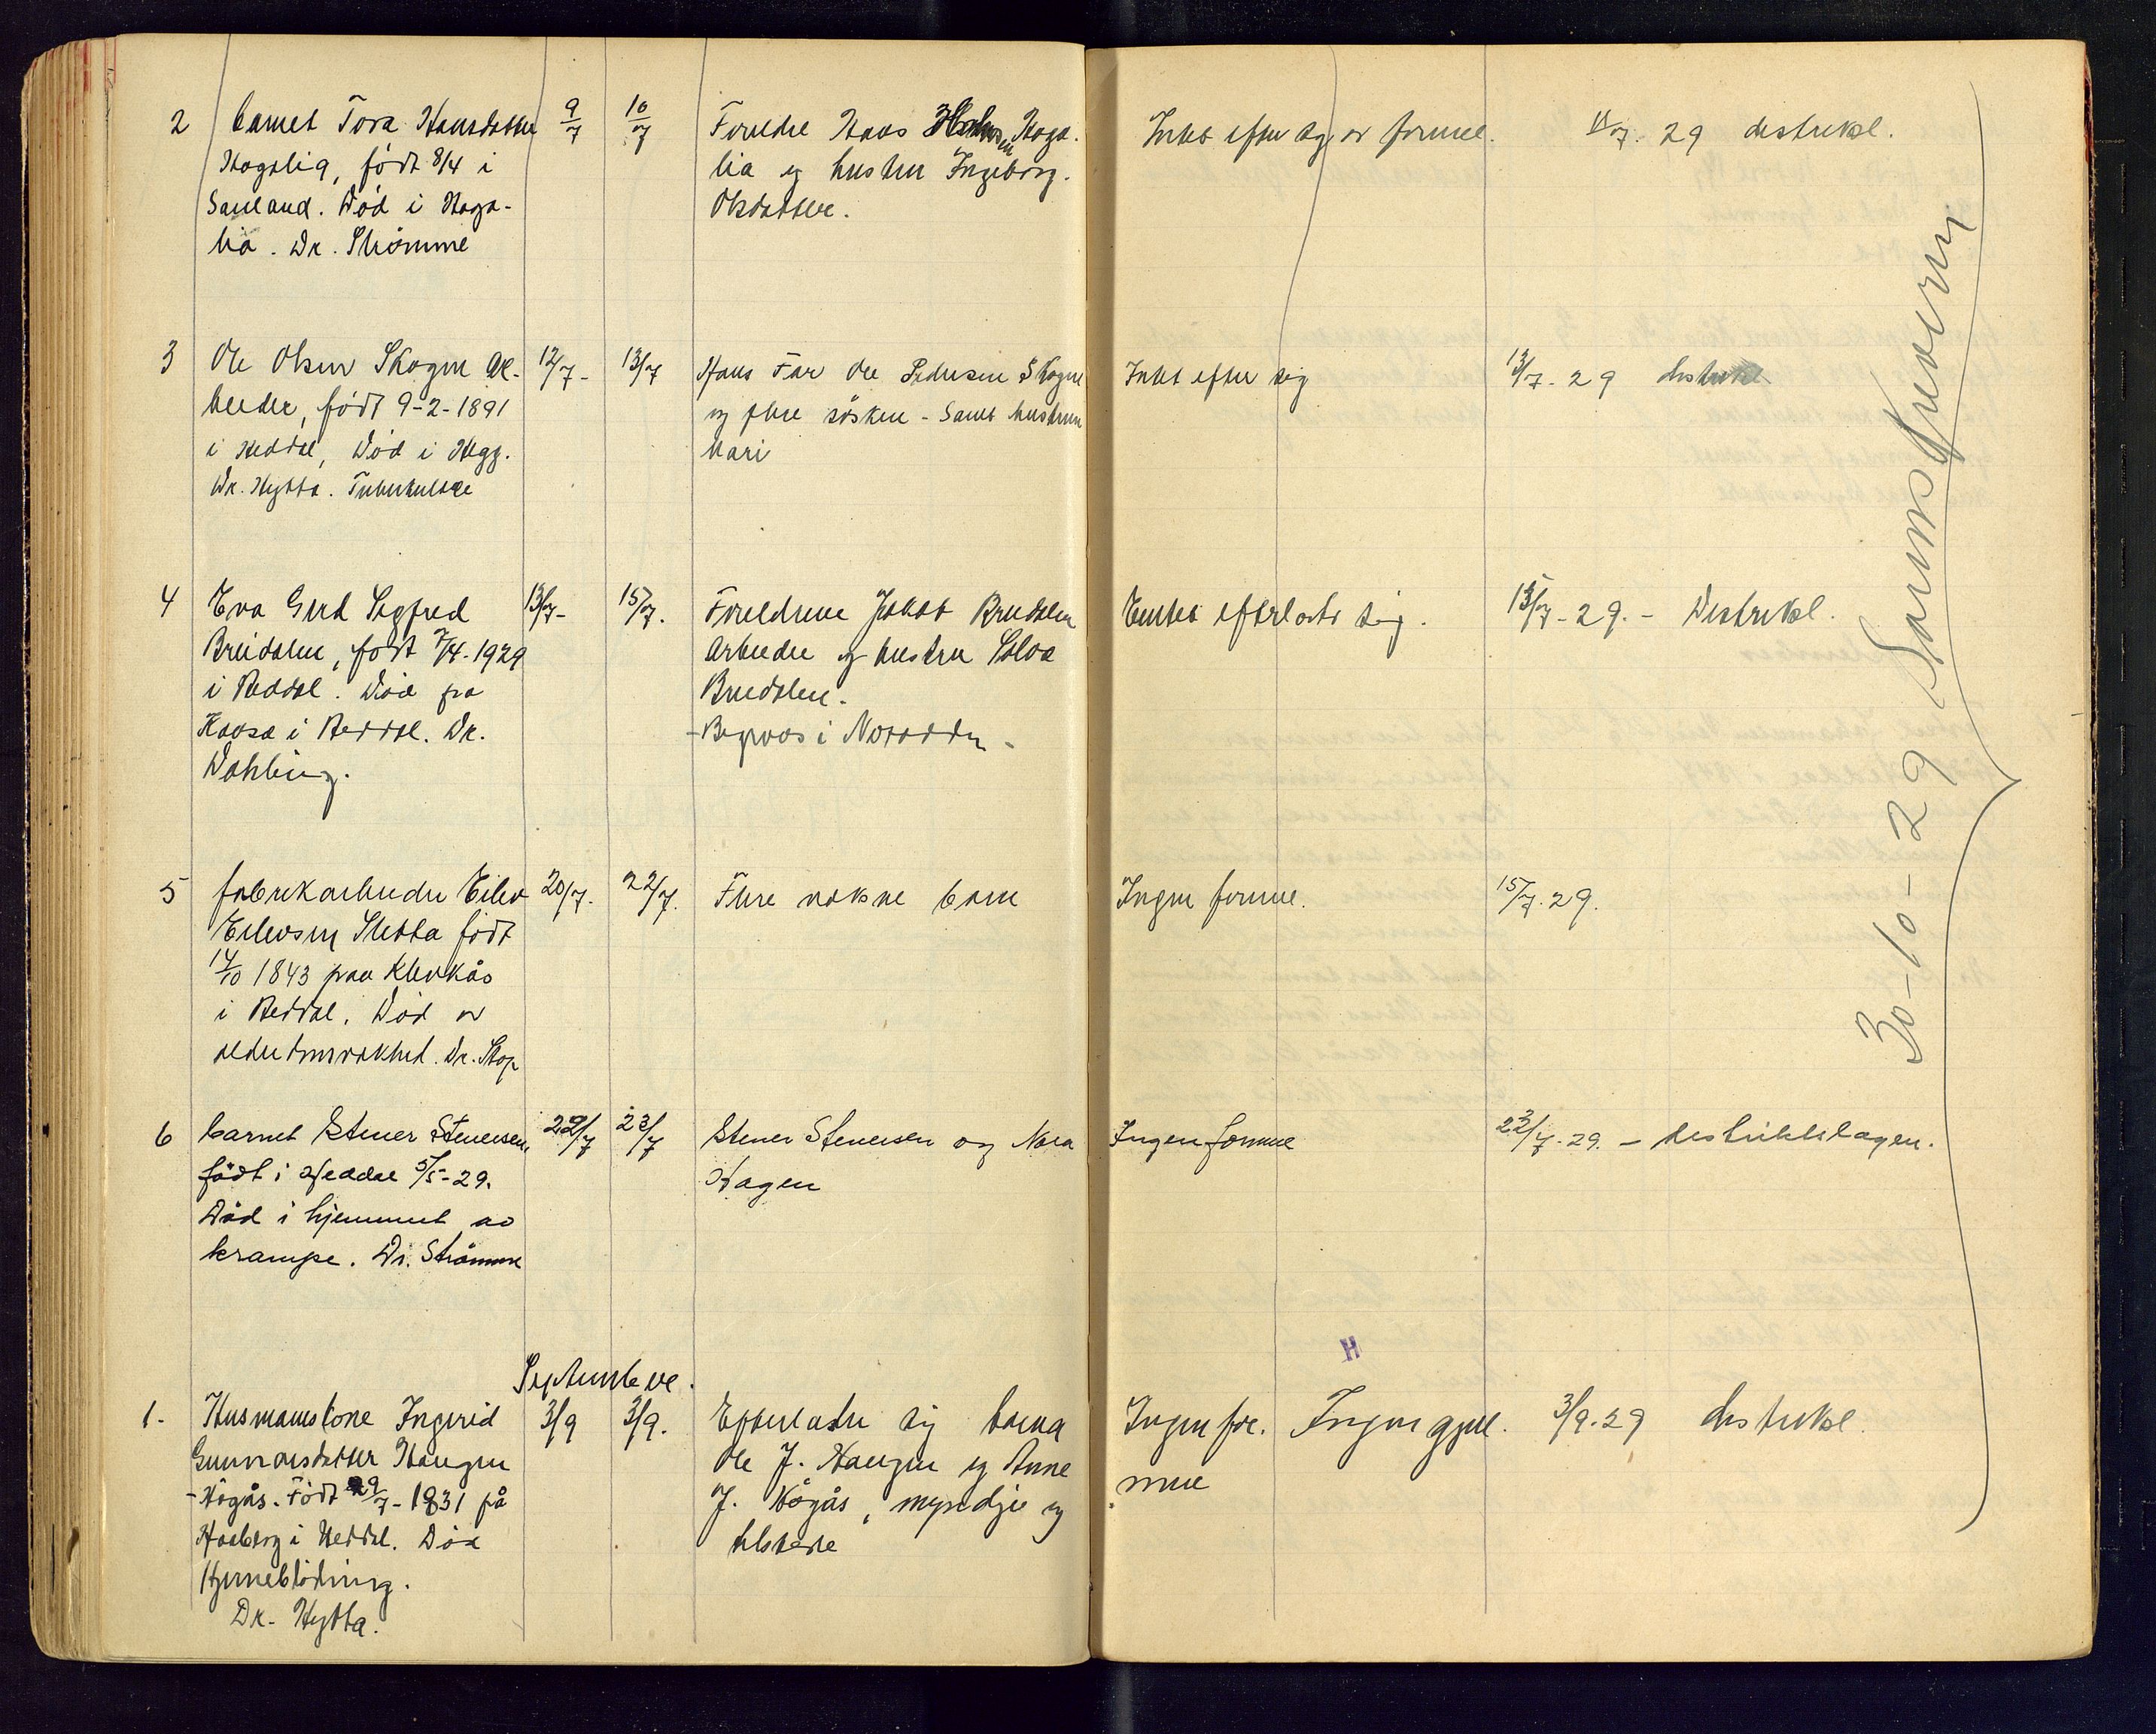 2 barnet Tora Hansdatter 9/7 10/7 Foreldre Hans Haga- Intet efter sig av formue. 11/7. 29 distriktsl.
Hagalia, født 8/4 i lia og hustru Ingeborg
Sauland. Død i Haga- Olsdatter.
lia. Dr. Strømme
3 Ole Olsen Skogen Ar- 12/7- 13/7 Hans Far Ole Pedersen Skogen Intet efter sig 13/7-29 distriktsl
beider, født 9-2-1891 og flere søsken - Samt hustrun
i Heddal, Død i Hegg. Mari
Dr. Hytta. Tuberkulose
4 Eva Gerd Sigfred 13/7- 15/7. Foreldrene Jakob Breidalen Entet efterlatt sig. 15/7-29.- Distriktsl.
Breidalen, født 7/4-1929 Arbeider og hustru
i Heddal. Død på Breidalen.
i Heddal. Dr. -Begraves i Notodden-
5 fabrikarbeider Eilev 20/7. 22/7. Flere voksne barn Ingen formue. 15/7. 29.
Eilevsen Sletta født
14/10 1843 paa Klevkås
i Heddal. Død av
alderdomsvakhet. Dr.
6 barnet Stener Stenersen, 22/7 23/7 Stener Stenersen og Nora Ingen formue 23/7-29. - distriktslagen.
født i Heddal 5/5-29. Hagen
Død i hjemmet av
krampe. Dr. Strømme
Septembere.
H
1- Husmanskone Ingerid 3/9 3/9. Efterlater sig barna Ingen for. Ingen gjel. 3/9-29 distriktsl.
Gunnarsdatter Haugen Ole J. Haugen og Anne mue
-Høgås. Født 29/7-1831 på J. Høgås, myndige og
i Heddal. Død tilstede
Hjerneblødning.
Dr. Hytta.
30-10-29